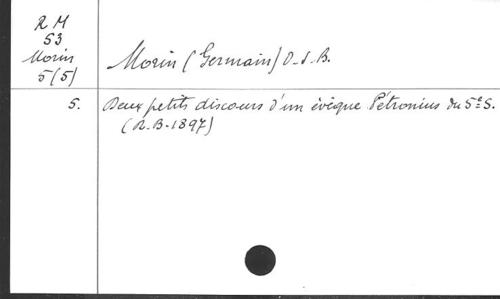 R M
53
Morin
5(5)
Morin (Germain) O.S.B.
5. Deux petits discours d'un évêque Pétronius du 5e S.
(R.B.1897)